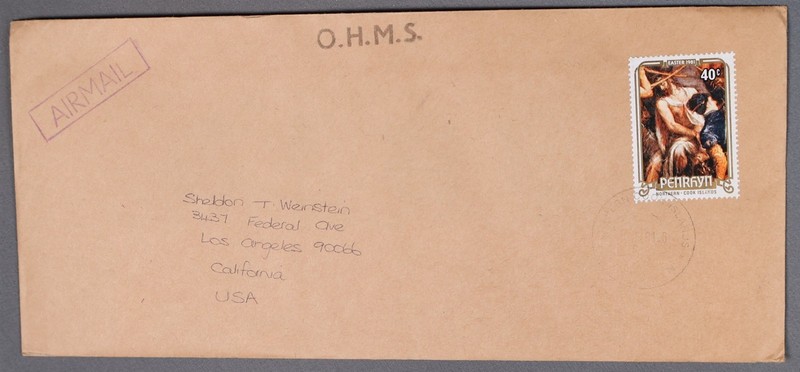 O.H.M.S.
AIRMAIL
EASTER 1981
40c
PENRHYN
NORTHERN - COOK ISLANDS
Sheldon T. Weinstein
3437 Federal Ave
Los Angeles 90066
California
USA